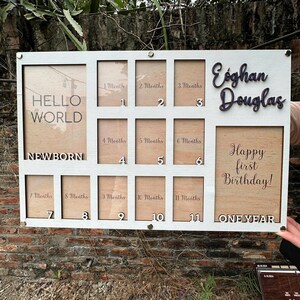 Eóghan
Douglas
HELLO
WORLD
NEWBORN
1 Months
1
2 Months
2
3 Months
3
4 Months
4
5 Months
5
6 Months
6
7 Months
7
8 Months
8
9 Months
9
10 Months
10
11 Months
11
Happy
first
Birthday!
ONE YEAR